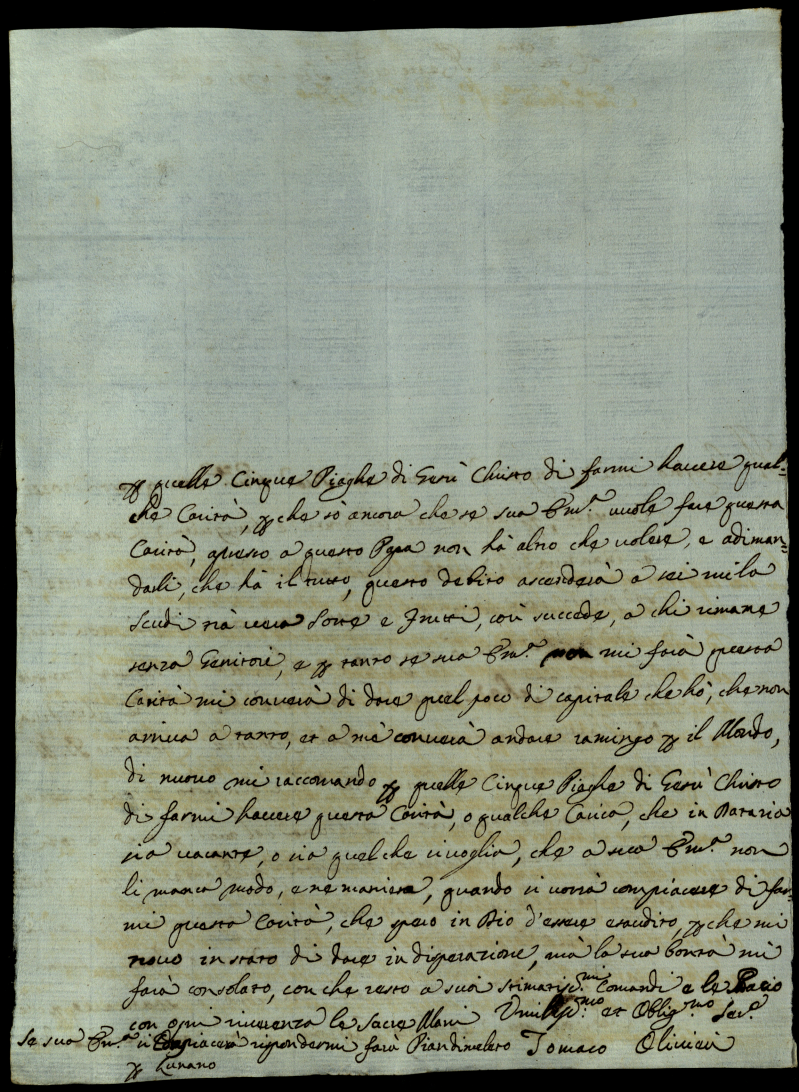 p quelle Cinque Piaghe di Gesù Christo di farmi havere qual=
che Carità, p che sò ancora che se sua Em.ᵃ vuole fare questa
Carità, presso a questo non hà altro che volere, e adiman=
darli, che hà il tutto, questo debito ascenderà a sei mila
Scudi trà vera Sorte e Frutti, così succede, a chi rimane
senza Genitori, e p tanto se sua Em.ᵃ non mi farà questa
Carità mi converà di dare quel poco di capitale che hò, che non
arriva a tanto, et a mè converà andare ramingo p il Mondo,
di nuovo mi raccomando p quelle Cinque Piaghe di Gesù Christo
di farmi havere questa Carità, o qualche Carica, che in
sia vacante, o sia quel che si voglia, che a sua Em.ᵃ non
li manca modo, e ne maniera, quando si vorrà compiacere di far=
mi questa Carità, che spero in Dio d'essere esaudito, p che mi
trovo in stato di dare in disperazione, mà la sua bontà mi
farà consolato, con che resto a suoi stimatis.ᵐⁱ Comandi e le Bacio
con ogni riverenza le Sacre Mani Umilis.ᵐᵒ et Oblig.ᵐᵒ Ser.ᵉ
Se sua Em.ᵃ si compiacerà rispondermi farà Piandimeleto Tomaso Olivieri
p Lunano